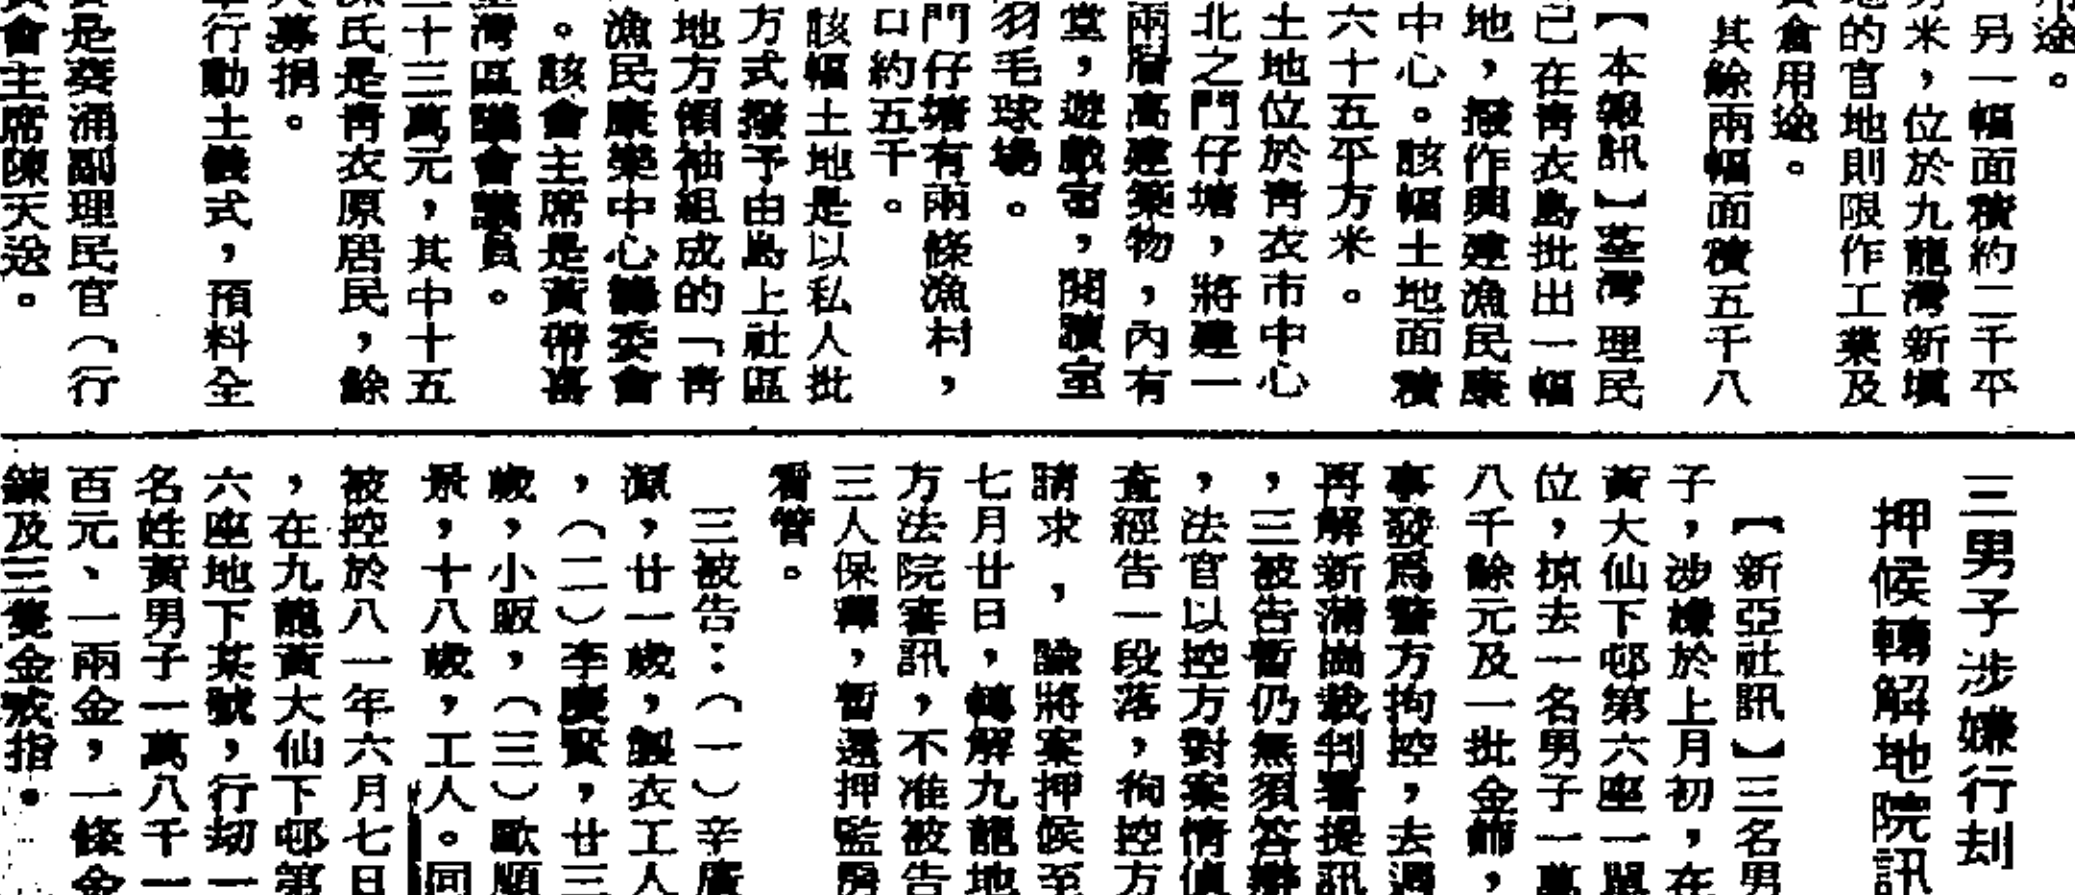 用途。
另一幅面積約二千平
方米，位於九龍灣新填
地的官地則限作工業及
貨倉用途。
其餘兩幅面積五千八
【本報訊】荃灣理民
已在青衣島批出一幅
地，撥作興建漁民康
中心。該幅土地面積
六十五平方米。
土地位於青衣市中心
北之門仔塘，將建一
兩層高建築物，內有
堂，遊戲室，閱讀室
羽毛球場。
門仔塘有兩條漁村，
口約五千。
該幅土地是以私人批
方式撥予由島上社區
地方領袖組成的「青
漁民康樂中心籌委會
。該會主席是黃帶喜
荃灣區議會議員。
二十三萬元，其中十五
陳氏是青衣原居民，餘
募捐。
行動土儀式，預料全
是葵涌副理民官（行
會主席陳天送。
三男子涉嫌行刦
押候轉解地院訊
【新亞社訊】三名男
子，涉嫌於上月初，在
黃大仙下邨第六座一單
位，掠去一名男子一萬
八千餘元及一批金飾，
事發爲警方拘控，去週
再解新蒲崗裁判署提訊
，三被告暫仍無須答辯
，法官以控方對案情偵
查經告一段落，徇控方
請求，諭將案押候至
七月廿日，轉解九龍地
方法院審訊，不准被告
三人保釋，暫還押監房
看管。
三被告：（一）辛廣
源，廿一歲，製衣工人
，（二）李慶賢，廿三
歲，小販，（三）歐順
景，十八歲，工人。同
被控於八一年六月七日
，在九龍黃大仙下邨第
六座地下某號，行刧一
名姓黃男子一萬八千一
百元、一兩金，一條金
鍊及三隻金戒指。